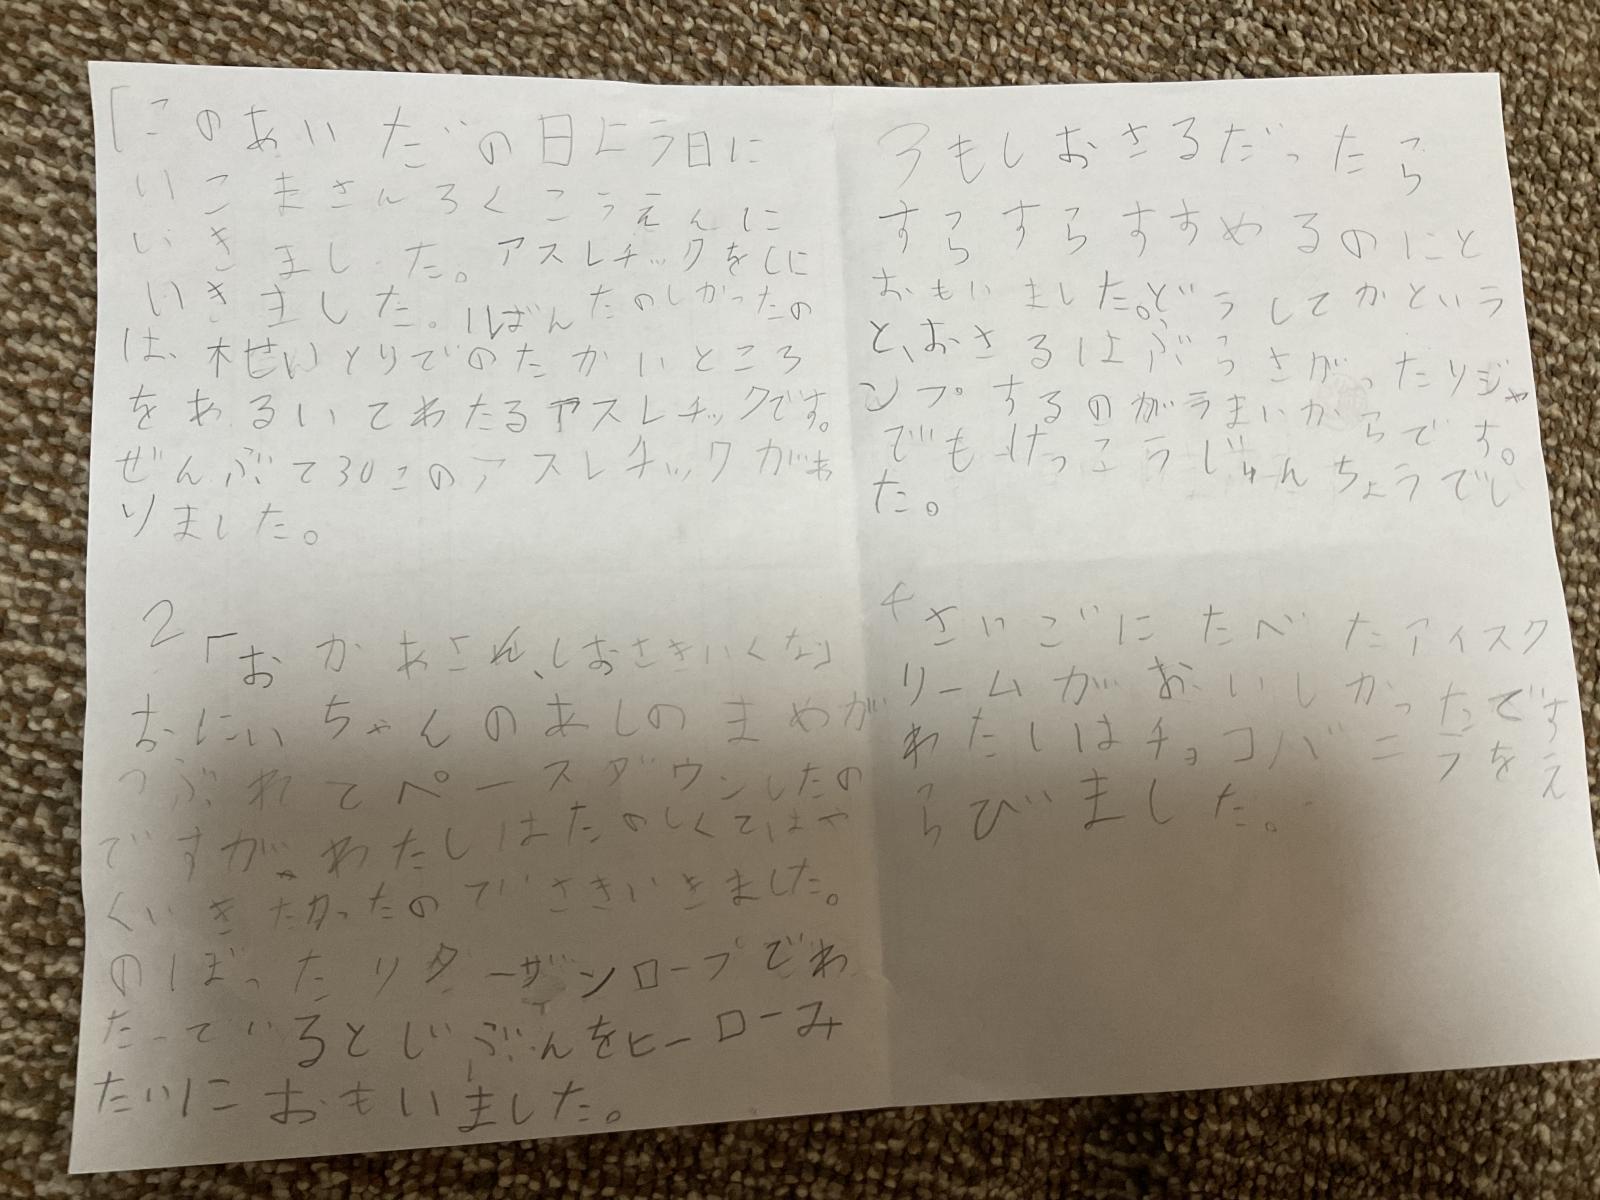 「このあいだの日にう日に
いこまさんろくこうえんに
いきました。アスレチックをしに
いきました。1ばんたのしかったの
は、木せいとりでのたかいところ
をあるいてわたるアスレチックです。
ぜんぶて30このアスレチックがあ
りました。
2「おかあさん、しおさきいくな」
おにいちゃんのあしのまめが
つぶれてペースダウンしたの
ですが、わたしはたのしくてはや
くいきたかったのでさきいきました。
のぼったりターザンロープでわ
たっているとじぶんをヒーローみ
たいにおもいました。
3もしおさるだったら
すらすらすすめるのにと
おもいました。どうしてかという
と、おさるはぶらさがったりジャ
ンプするのがうまいからです。
でもけっこうじゅんちょうでし
た。
4さいごにたべたアイスク
リームがおいしかったです
わたしはチョコバニラをえ
らびました。